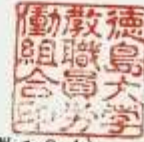 徳島大学
教職員労
働組合印